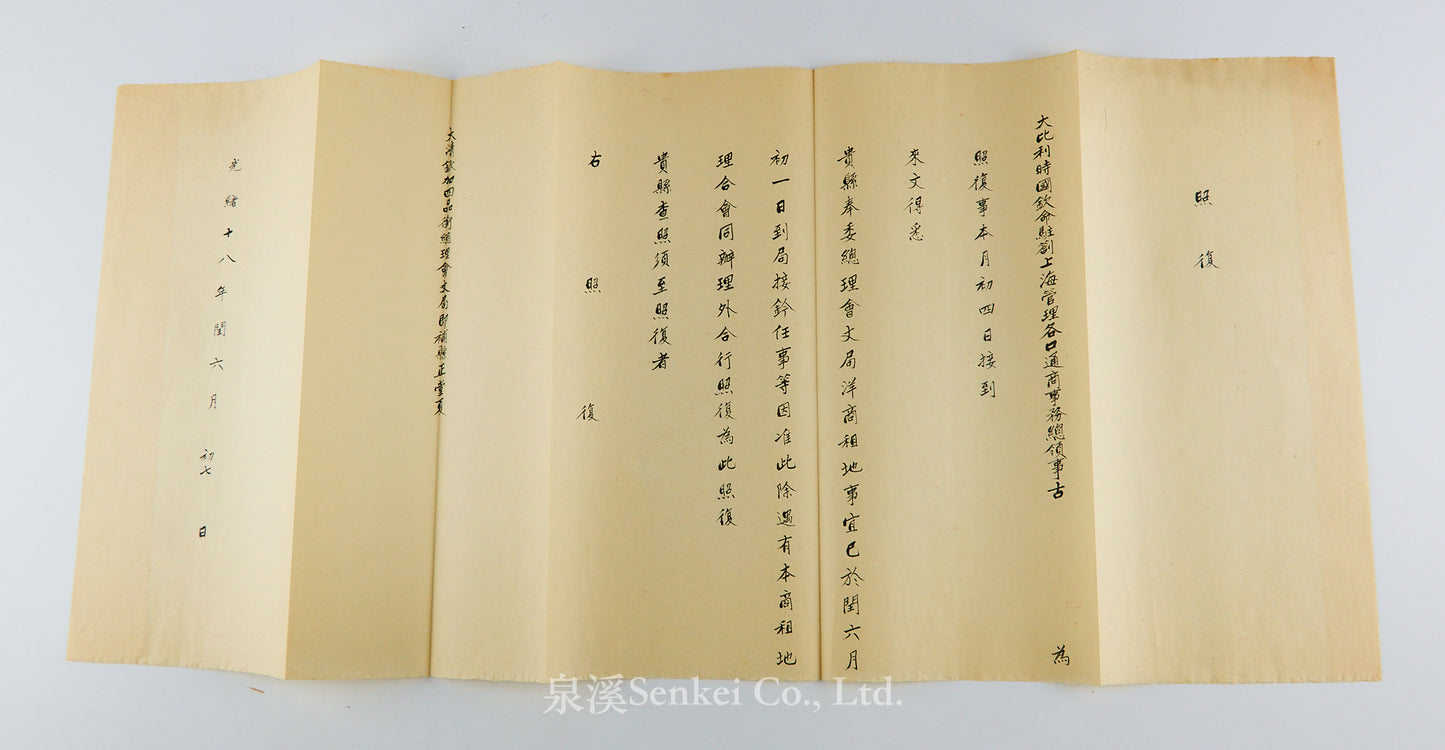 照復
大比利時國欽命駐劄上海管理各口通商事務總領事古 為
照復事本月初四日接到
來文得悉
貴縣奉委總理會丈局洋商租地事宜已於閏六月
初一日到局接鈐任事等因准此除遇有本商租地
理合會同辦理外合行照復為此照復
貴縣查照須至照復者
右照復
大清欽加四品銜總理會丈局即補縣正堂夏
光緒十八年閏六月初七日
泉溪Senkei Co., Ltd.